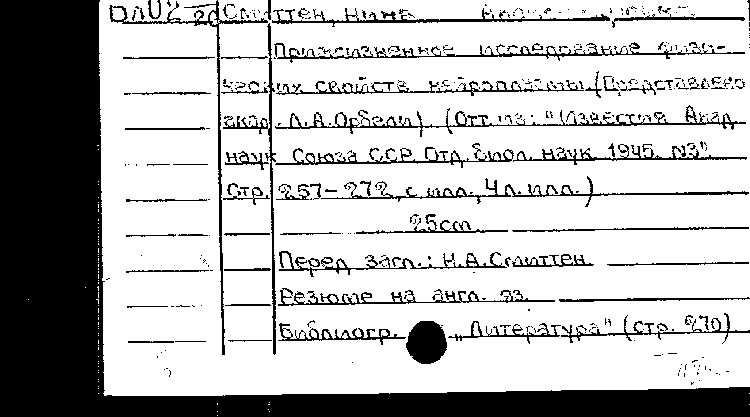 Смиттен, Нина
Прижизненное исследование физи-
ческих свойств нейроплазмы (Представлено
акад. Л.А.Орбели) (Отт. из: "Известия Акад.
наук Союза ССР. Отд. биол. наук. 1945. N3".
Стр. 257-272, с илл., 4л. илл.)
25cm
Перед загл.: Н.А.Смиттен
Резюме на англ. яз.
Библиогр. „Литература" (стр. 270)